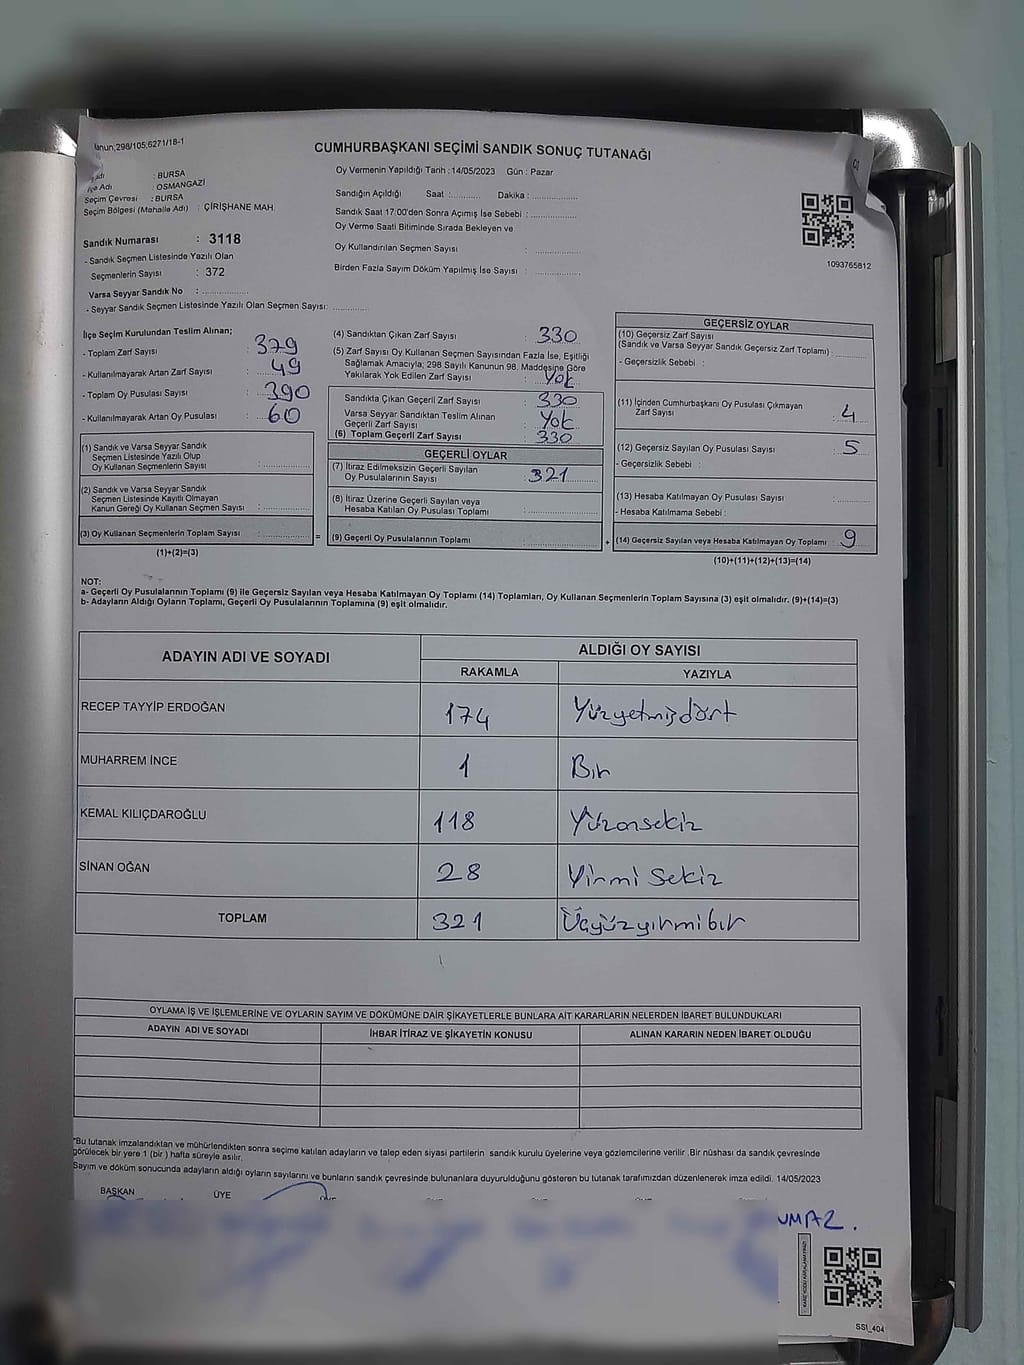 Kanun,298/105;6271/18-1
CUMHURBAŞKANI SEÇİMİ SANDIK SONUÇ TUTANAĞI
Adı : BURSA
İlçe Adı : OSMANGAZİ
Seçim Çevresi : BURSA
Seçim Bölgesi (Mahalle Adı) : ÇİRİŞHANE MAH.
Sandık Numarası : 3118
- Sandık Seçmen Listesinde Yazılı Olan
Seçmenlerin Sayısı : 372
Varsa Seyyar Sandık No : ..................
- Seyyar Sandık Seçmen Listesinde Yazılı Olan Seçmen Sayısı: ............
Oy Vermenin Yapıldığı Tarih : 14/05/2023 Gün : Pazar
Sandığın Açıldığı Saat :.......... Dakika : ..............
Sandık Saat 17:00'den Sonra Açımış İse Sebebi : ..............
Oy Verme Saati Bitiminde Sırada Bekleyen ve
Oy Kullandırılan Seçmen Sayısı : ..............
Birden Fazla Sayım Döküm Yapılmış İse Sayısı : ..............
1093765812
İlçe Seçim Kurulundan Teslim Alınan;
- Toplam Zarf Sayısı : 379
- Kullanılmayarak Artan Zarf Sayısı : 49
- Toplam Oy Pusulası Sayısı : 390
- Kullanılmayarak Artan Oy Pusulası : 60
(1) Sandık ve Varsa Seyyar Sandık
Seçmen Listesinde Yazılı Olup
Oy Kullanan Seçmenlerin Sayısı : ..............
(2) Sandık ve Varsa Seyyar Sandık
Seçmen Listesinde Kayıtlı Olmayan
Kanun Gereği Oy Kullanan Seçmen Sayısı : ..............
(3) Oy Kullanan Seçmenlerin Toplam Sayısı : ..............
(1)+(2)=(3)
(4) Sandıktan Çıkan Zarf Sayısı : 330
(5) Zarf Sayısı Oy Kullanan Seçmen Sayısından Fazla İse, Eşitliği
Sağlamak Amacıyla; 298 Sayılı Kanunun 98. Maddesine Göre
Yakılarak Yok Edilen Zarf Sayısı : Yok
Sandıkta Çıkan Geçerli Zarf Sayısı : 330
Varsa Seyyar Sandıktan Teslim Alınan
Geçerli Zarf Sayısı : Yok
(6) Toplam Geçerli Zarf Sayısı : 330
GEÇERLİ OYLAR
(7) İtiraz Edilmeksizin Geçerli Sayılan
Oy Pusulalarının Sayısı : 321
(8) İtiraz Üzerine Geçerli Sayılan veya
Hesaba Katılan Oy Pusulası Toplamı : ..............
(9) Geçerli Oy Pusulalarının Toplamı : ..............
=
+
GEÇERSİZ OYLAR
(10) Geçersiz Zarf Sayısı
(Sandık ve Varsa Seyyar Sandık Geçersiz Zarf Toplamı) : ..........
- Geçersizlik Sebebi :
(11) İçinden Cumhurbaşkanı Oy Pusulası Çıkmayan
Zarf Sayısı : 4
(12) Geçersiz Sayılan Oy Pusulası Sayısı : 5
- Geçersizlik Sebebi :
(13) Hesaba Katılmayan Oy Pusulası Sayısı : ..........
- Hesaba Katılmama Sebebi :
(14) Geçersiz Sayılan veya Hesaba Katılmayan Oy Toplamı : 9
(10)+(11)+(12)+(13)=(14)
NOT:
a- Geçerli Oy Pusulalarının Toplamı (9) ile Geçersiz Sayılan veya Hesaba Katılmayan Oy Toplamı (14) Toplamları, Oy Kullanan Seçmenlerin Toplam Sayısına (3) eşit olmalıdır. (9)+(14)=(3)
b- Adayların Aldığı Oyların Toplamı, Geçerli Oy Pusulalarının Toplamına (9) eşit olmalıdır.
ADAYIN ADI VE SOYADI ALDIĞI OY SAYISI
RAKAMLA YAZIYLA
RECEP TAYYİP ERDOĞAN 174 Yüzyetmişdört
MUHARREM İNCE 1 Bir
KEMAL KILIÇDAROĞLU 118 Yüzonsekiz
SİNAN OĞAN 28 Yirmi Sekiz
TOPLAM 321 Üçyüzyirmibir
OYLAMA İŞ VE İŞLEMLERİNE VE OYLARIN SAYIM VE DÖKÜMÜNE DAİR ŞİKAYETLERLE BUNLARA AİT KARARLARIN NELERDEN İBARET BULUNDUKLARI
ADAYIN ADI VE SOYADI İHBAR İTİRAZ VE ŞİKAYETİN KONUSU ALINAN KARARIN NEDEN İBARET OLDUĞU
*Bu tutanak imzalandıktan ve mühürlendikten sonra seçime katılan adayların ve talep eden siyasi partilerin sandık kurulu üyelerine veya gözlemcilerine verilir .Bir nüshası da sandık çevresinde
görülecek bir yere 1 (bir ) hafta süreyle asılır.
Sayım ve döküm sonucunda adayların aldığı oyların sayılarını ve bunların sandık çevresinde bulunanlara duyurulduğunu gösteren bu tutanak tarafımızdan düzenlenerek imza edildi. 14/05/2023
BAŞKAN ÜYE
UMAZ.
SSI_404